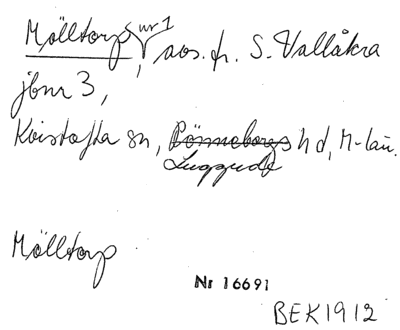 Mölltorp nr 1, avs. fr. S. Vallåkra
jbnr 3,
Kvistofta sn, Rönnebergs hd, M-län.
Luggude
Mölltorp
Nr 16691
BEK 1912